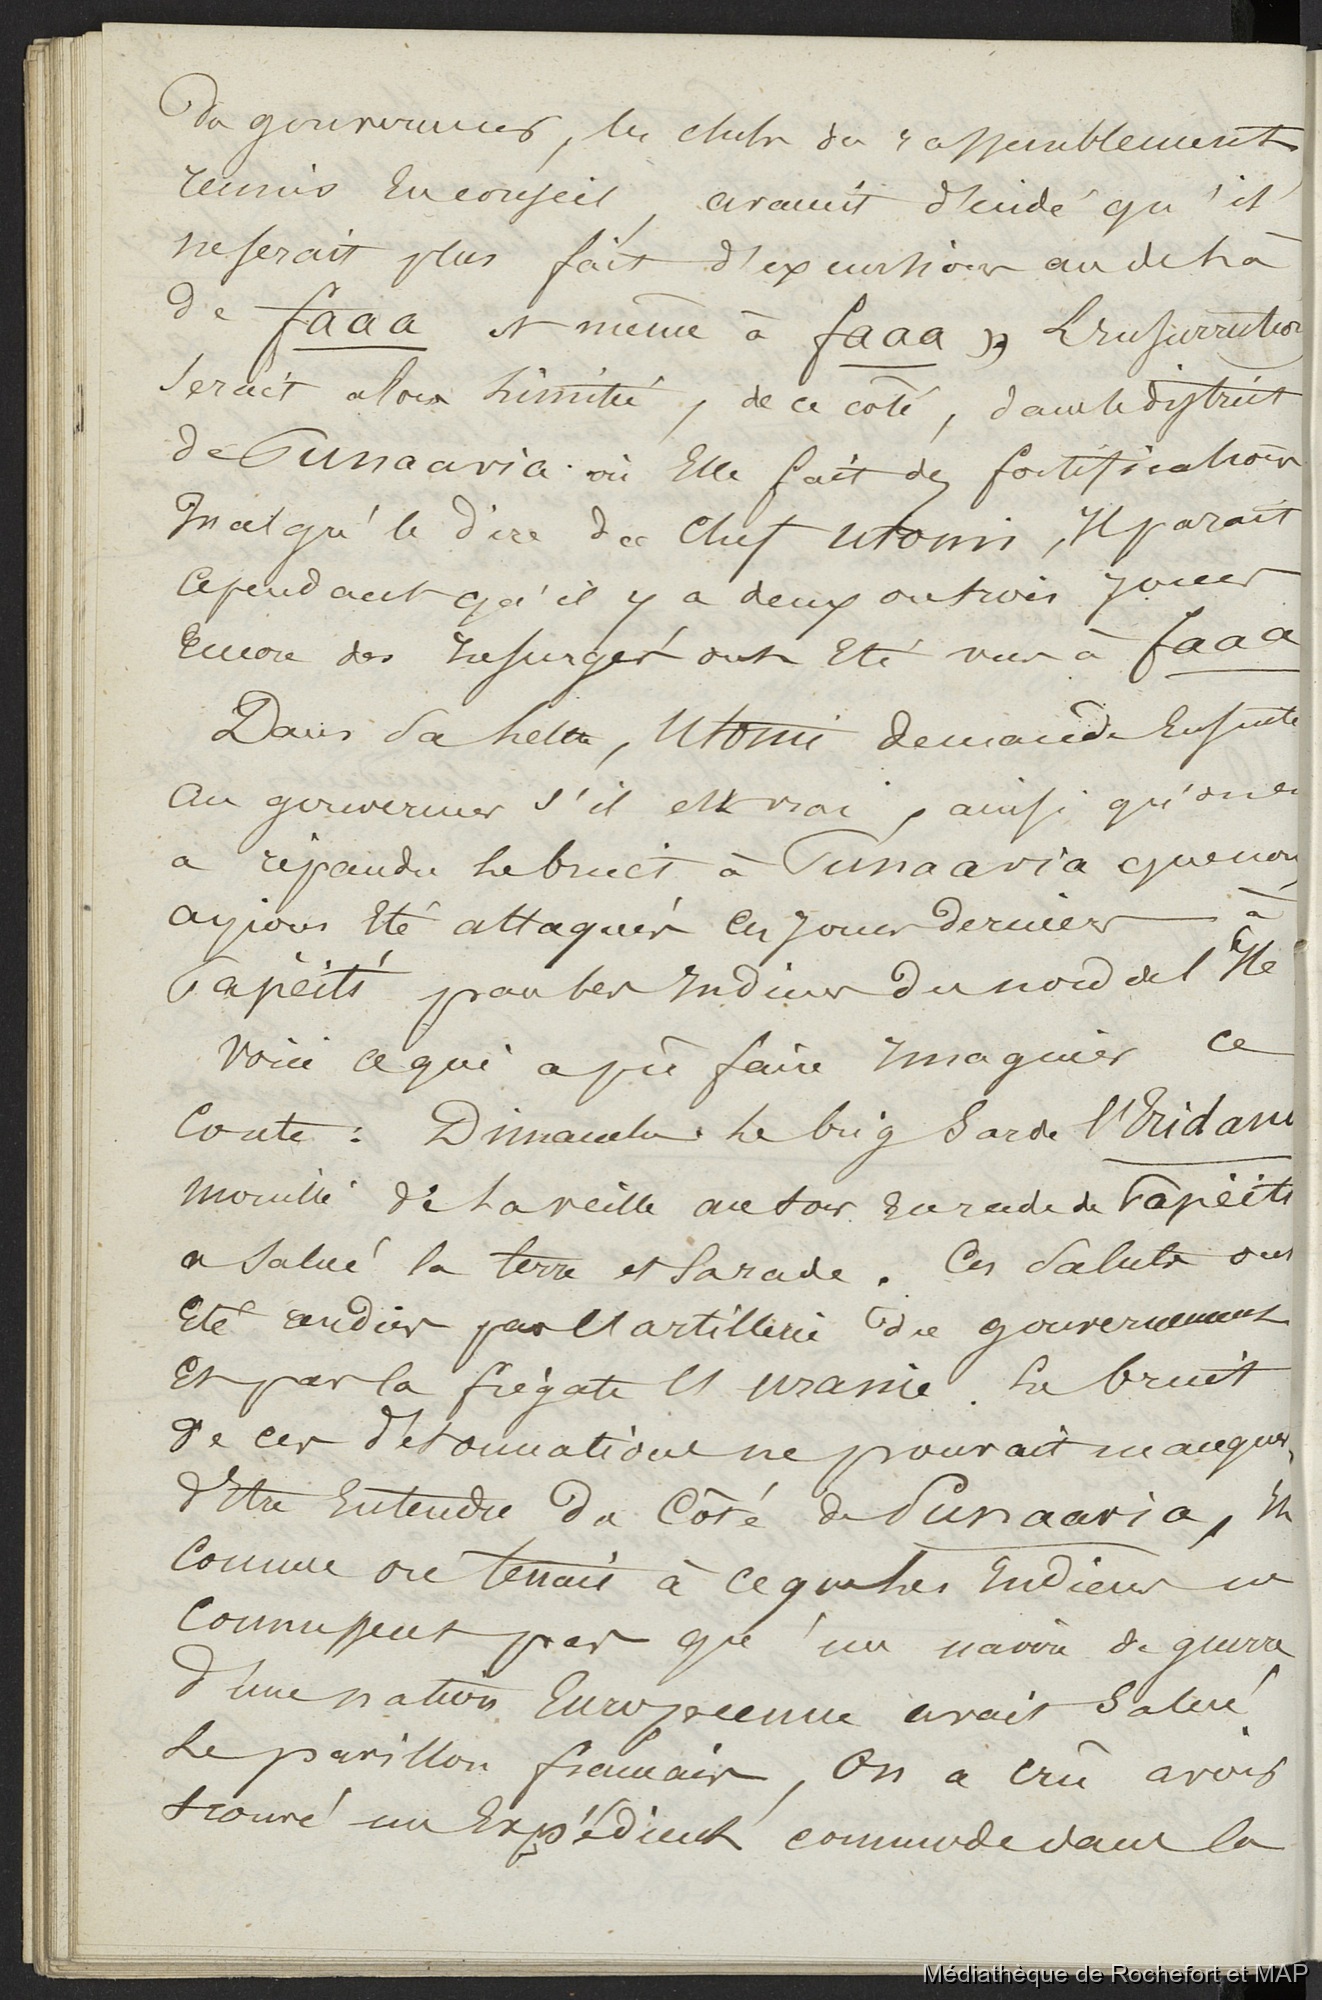 du gouverneur, les chefs du rassemblement
réunis en conseil, avaient décidé qu'il
ne serait plus fait d'excursions au delà
de faaa et même à faaa » L'insurrection
serait alors limitée, de ce côté, dans le district
de Punaavia où Elle fait des fortifications
Malgré le dire du Chef Utomi, Il parait
cependant qu'il y a deux ou trois jours
Encore des Insurgés ont Eté vus à faaa
Dans sa lettre, Utomi demande Ensuite
au gouverneur s'il est vrai, ainsi qu'on en
a répandu le bruit à Punaavia que nous
ayions Eté attaqués ces jours derniers à
Papéiti par les Indiens du nord de l'Ile
Voici ce qui a pû faire Imaginer ce
Conte : Dimanche le brig Sarde l'Eridan
mouillé de la veille au soir En rade de Papéiti
a Salué la terre et la rade. Ces Saluts ont
Eté rendus par l'artillerie du gouvernement
Et par la frégate l'Uranie. Le bruit
de ces détonnations ne pouvait manquer
d'Etre Entendu du Côté de Punaavia, Et
comme on tenait à ce que les Indiens ne
connussent pas qu'un navire de guerre
d'une nation Européenne avait Salué
le pavillon français, On a crû avoir
trouvé un Expédient commode dans la
Médiathèque de Rochefort et MAP